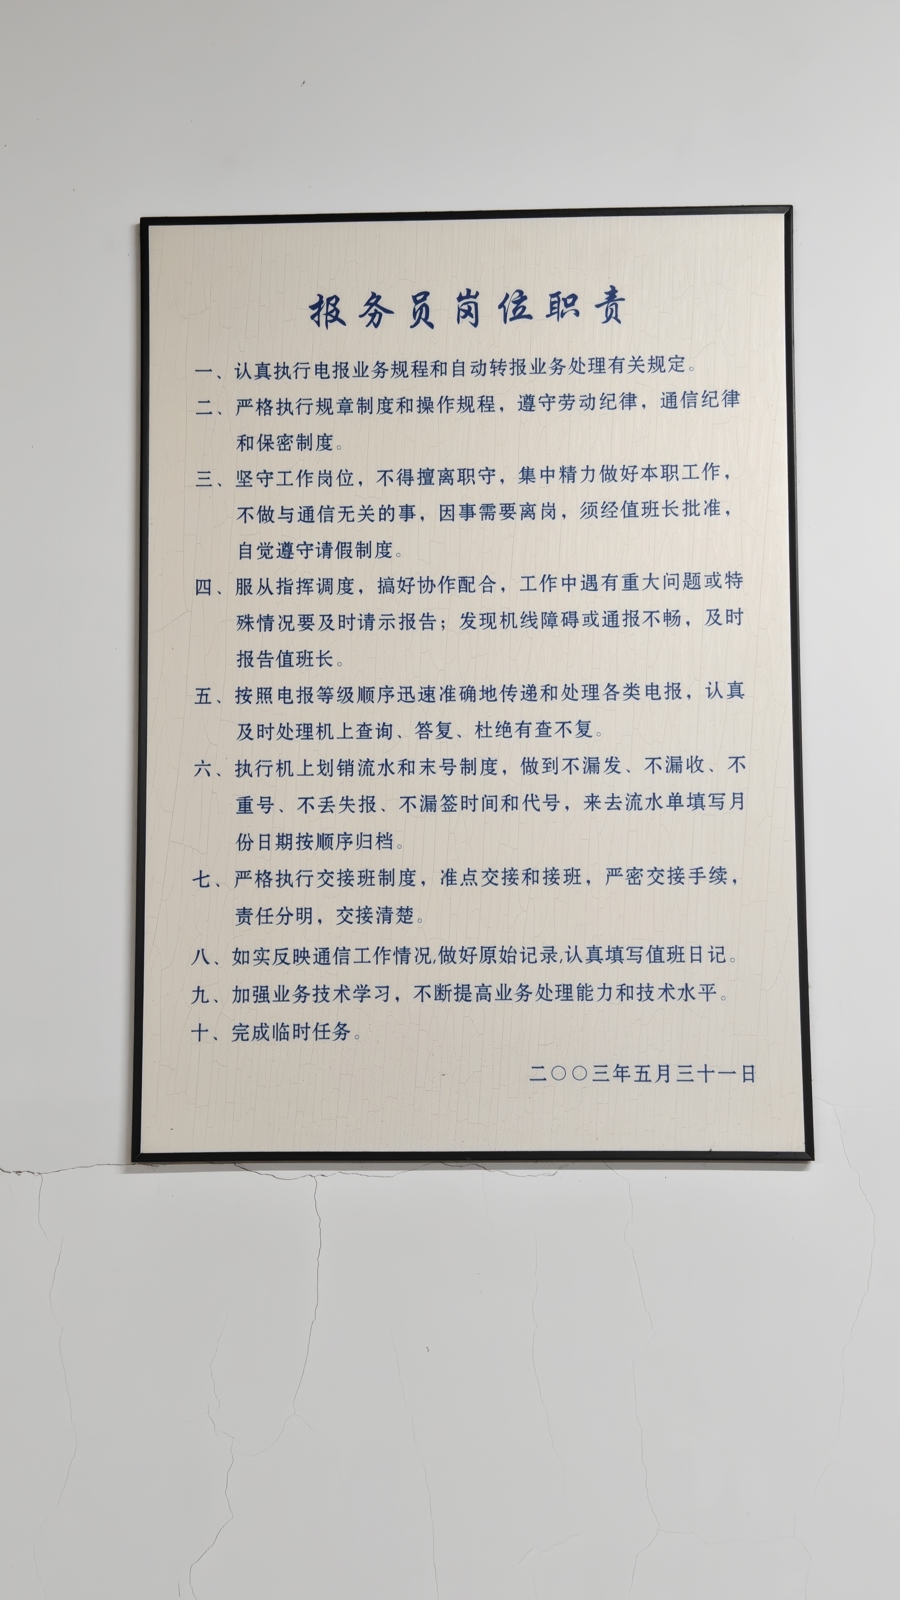 报务员岗位职责
一、认真执行电报业务规程和自动转报业务处理有关规定。
二、严格执行规章制度和操作规程，遵守劳动纪律，通信纪律
和保密制度。
三、坚守工作岗位，不得擅离职守，集中精力做好本职工作，
不做与通信无关的事，因事需要离岗，须经值班长批准，
自觉遵守请假制度。
四、服从指挥调度，搞好协作配合，工作中遇有重大问题或特
殊情况要及时请示报告；发现机线障碍或通报不畅，及时
报告值班长。
五、按照电报等级顺序迅速准确地传递和处理各类电报，认真
及时处理机上查询、答复、杜绝有查不复。
六、执行机上划销流水和末号制度，做到不漏发、不漏收、不
重号、不丢失报、不漏签时间和代号，来去流水单填写月
份日期按顺序归档。
七、严格执行交接班制度，准点交接和接班，严密交接手续，
责任分明，交接清楚。
八、如实反映通信工作情况,做好原始记录,认真填写值班日记。
九、加强业务技术学习，不断提高业务处理能力和技术水平。
十、完成临时任务。
二〇〇三年五月三十一日